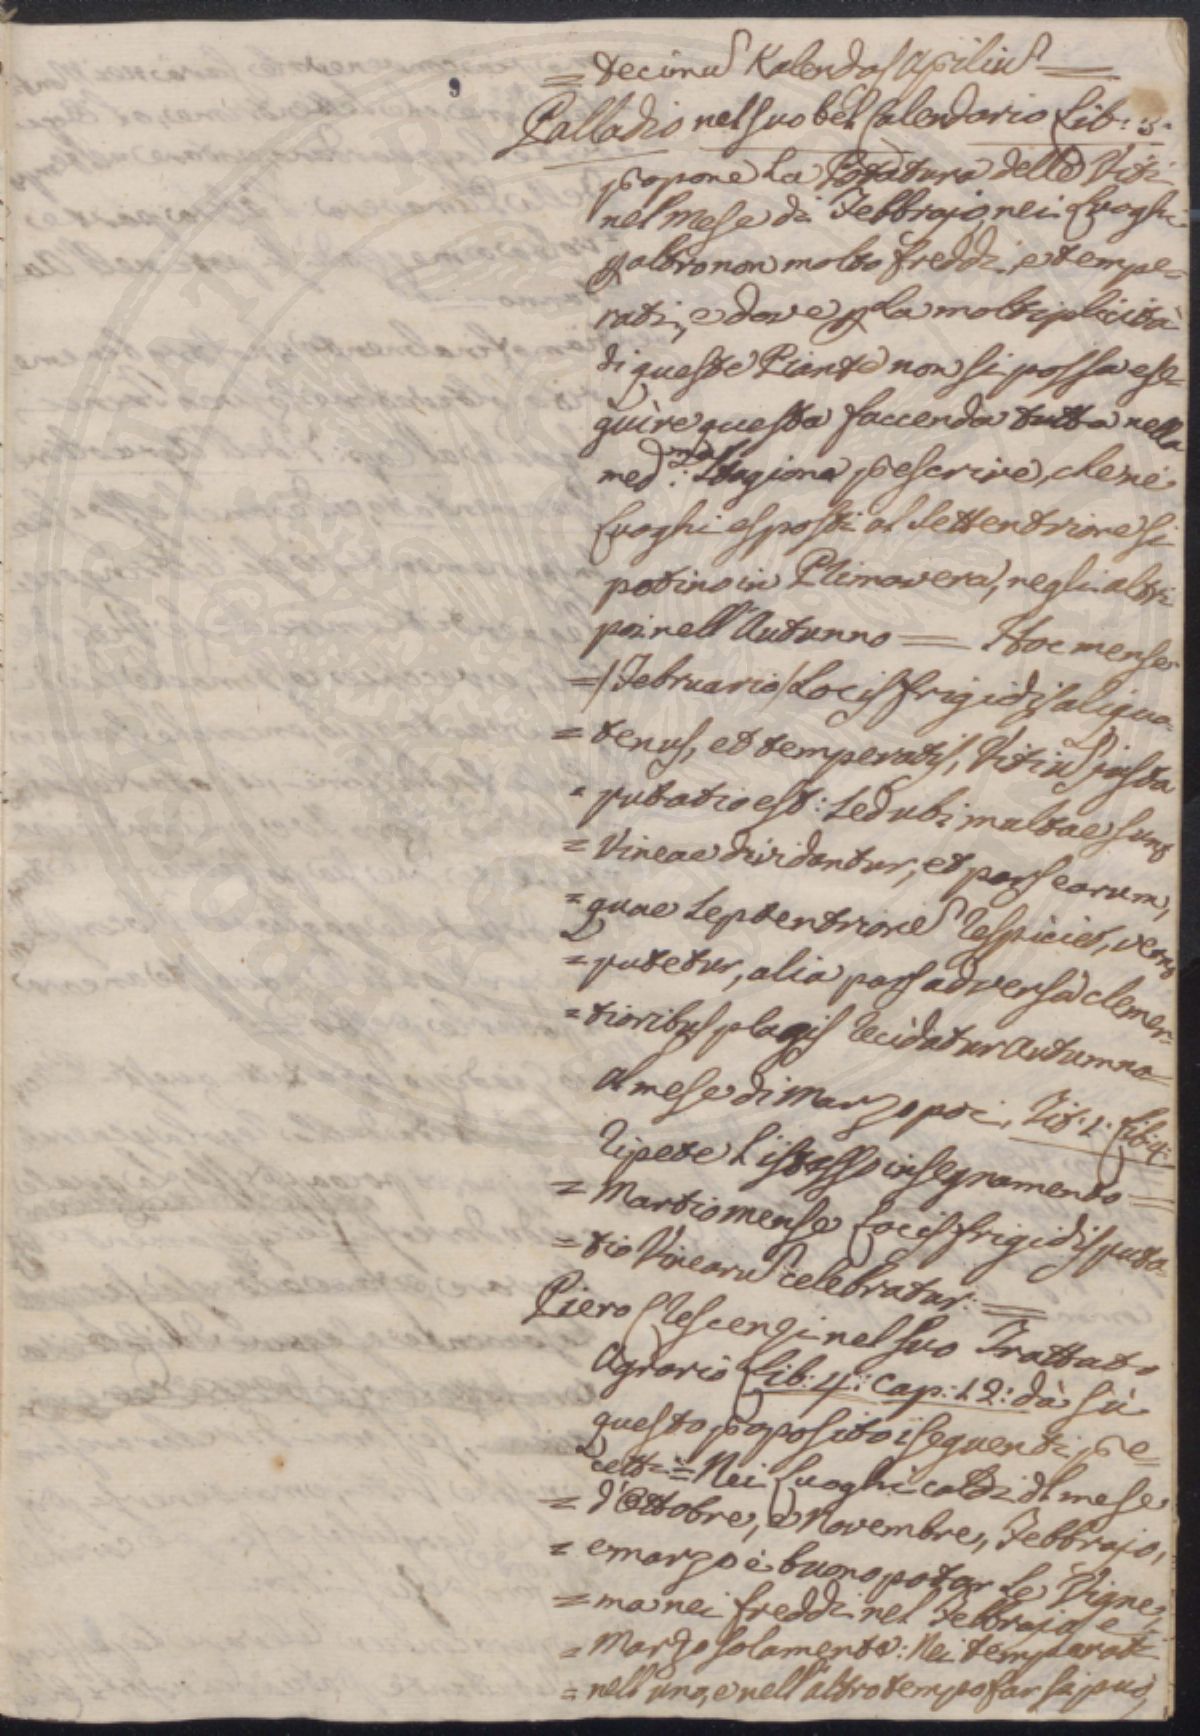 = decimũ Kalendas Apiliũ =
Palladio nel suo bel Calendario Lib: 3.
propone la Potatura delle Viti
nel mese di Febbrajo, nei Luoghi
p altro non molto freddi, e tempe=
rati, e dove p la moltiplicità
di queste Piante non si possa ese=
guire questa faccenda tutta nella
med:ma Stagione prescrive, che nei
Luoghi esposti al Settentrione si
potino in Primavera, negli altri
poi nell'Autunno = Hoc mense
= /Februario/ Locis frigidis aliqua=
= tenus, et temperatis, Vitiũ justa
= putatio est: Sed ubi multae sunt
= Vineae dividantur, et pars earum,
= quae Septentrionẽ respiciet, vere
= putetur, alia pars adversa clemen=
= tioribus plagis recidatur Autumno
al mese di Marzo poi, Tit: 1: Lib: 4:
ripete l'istesso insegnamento =
= Martio mense Locis frigidis puta=
= tio Vinearũ celebratur: =
Piero Crescenzi nel suo Trattato
Agrario Lib: 4: Cap: 12: dà sù
questo proposito i seguenti pre=
cetti = Nei Luoghi caldi del mese
= d'Ottobre, e Novembre, Febbrajo,
= e marzo è buono potar le Vigne,
= ma nei freddi nel Febbrajo e
= Marzo solamente: Nei temparati
= nell'uno, e nell'altro tempo far si può,